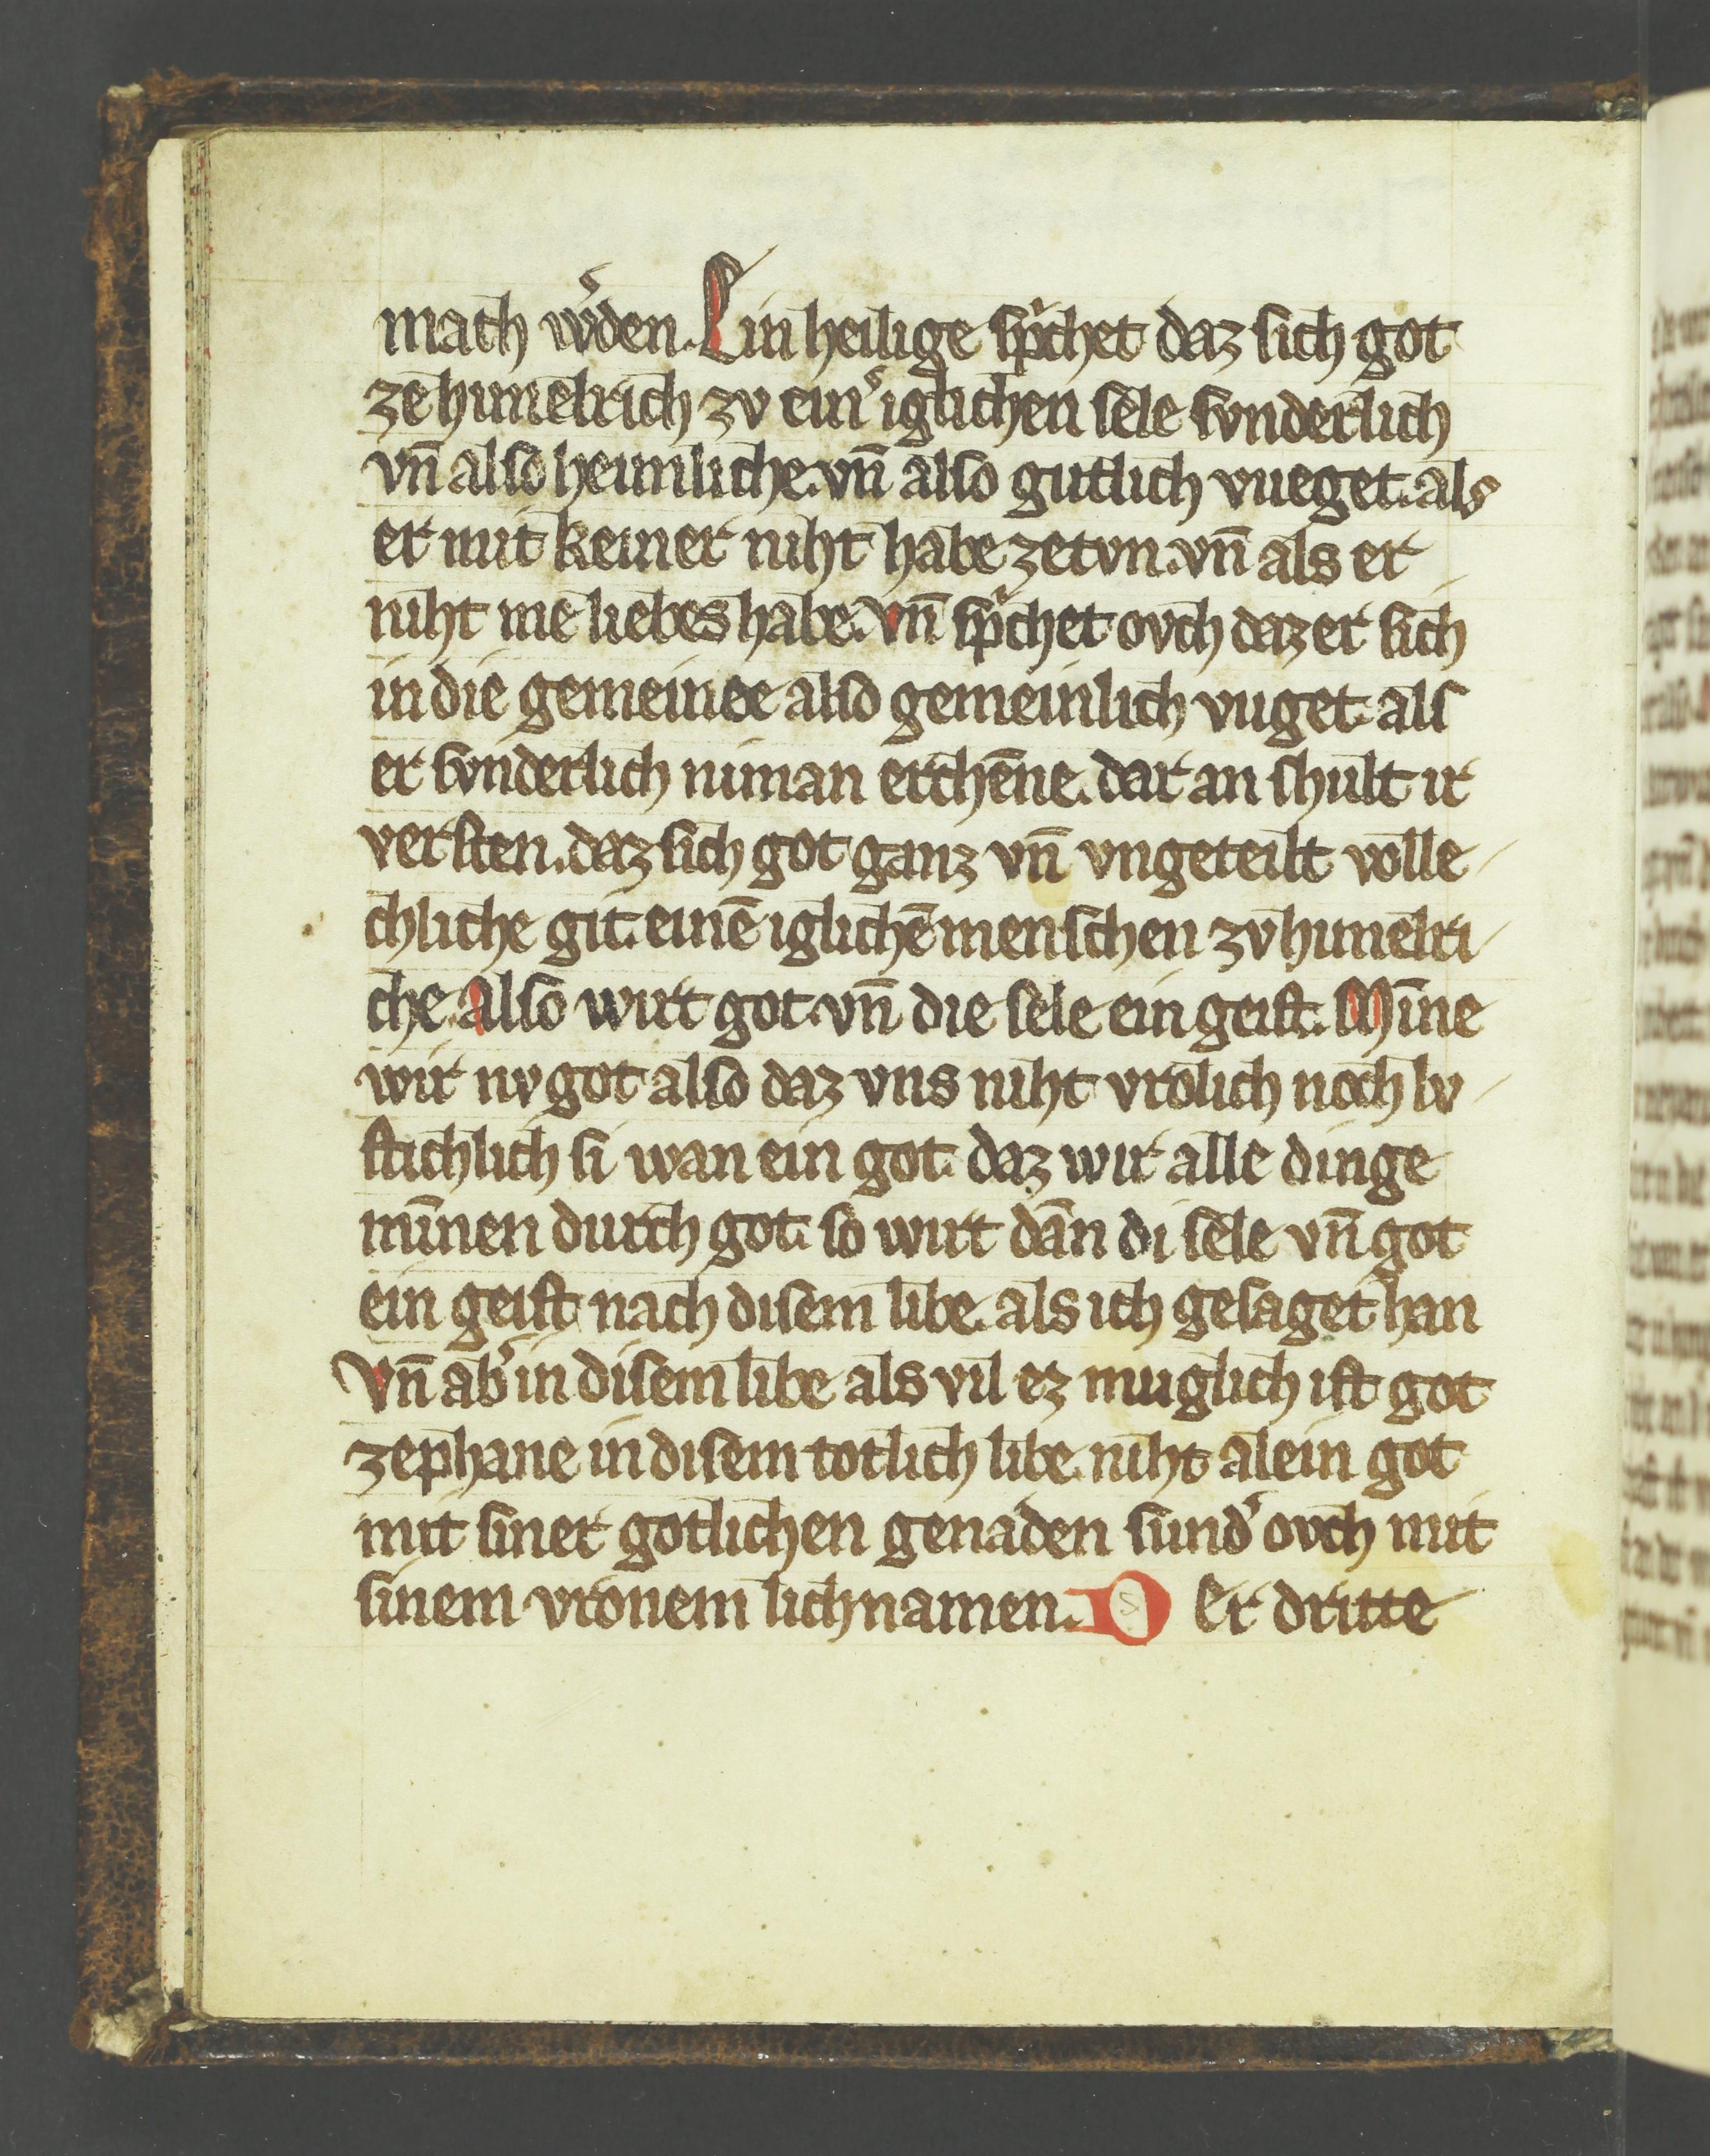 mach wͤden. Ein heilige spͥchet daz sich got
ze himelrich zv ein͛ iglichen sele svnderlich
vn̄ also heimliche. vn̄ also gutlich vueget. als
er mit keiner niht habe ze tvn. vn̄ als er
niht me liebes habe. Vn̄ spͥchet ovch daz er sich
in die gemeinee also gemeinlich vuget. als
er svnderlich niman erchēne. dar an shult ir
versten. daz sich got ganz vn̄ vngeteilt volle
chliche git. einē iglichē menschen zv himelri
che. Also wirt got. vn̄ die sele ein geist. Mīne
wir nv got also daz vns niht vrolich noch lv
stichlich si wan ein got. daz wir alle dinge
mīnen durch got. so wirt dān di sele vn̄ got
ein geist nach disem libe. als ich gesaget han
Vn̄ ab͛ in disem libe als vil ez muglich ist got
zephane in disem totlich libe. niht alein got
mit siner gotlichen genaden sund͛ ovch mit
sinem vronem lichnamen. D er dritte